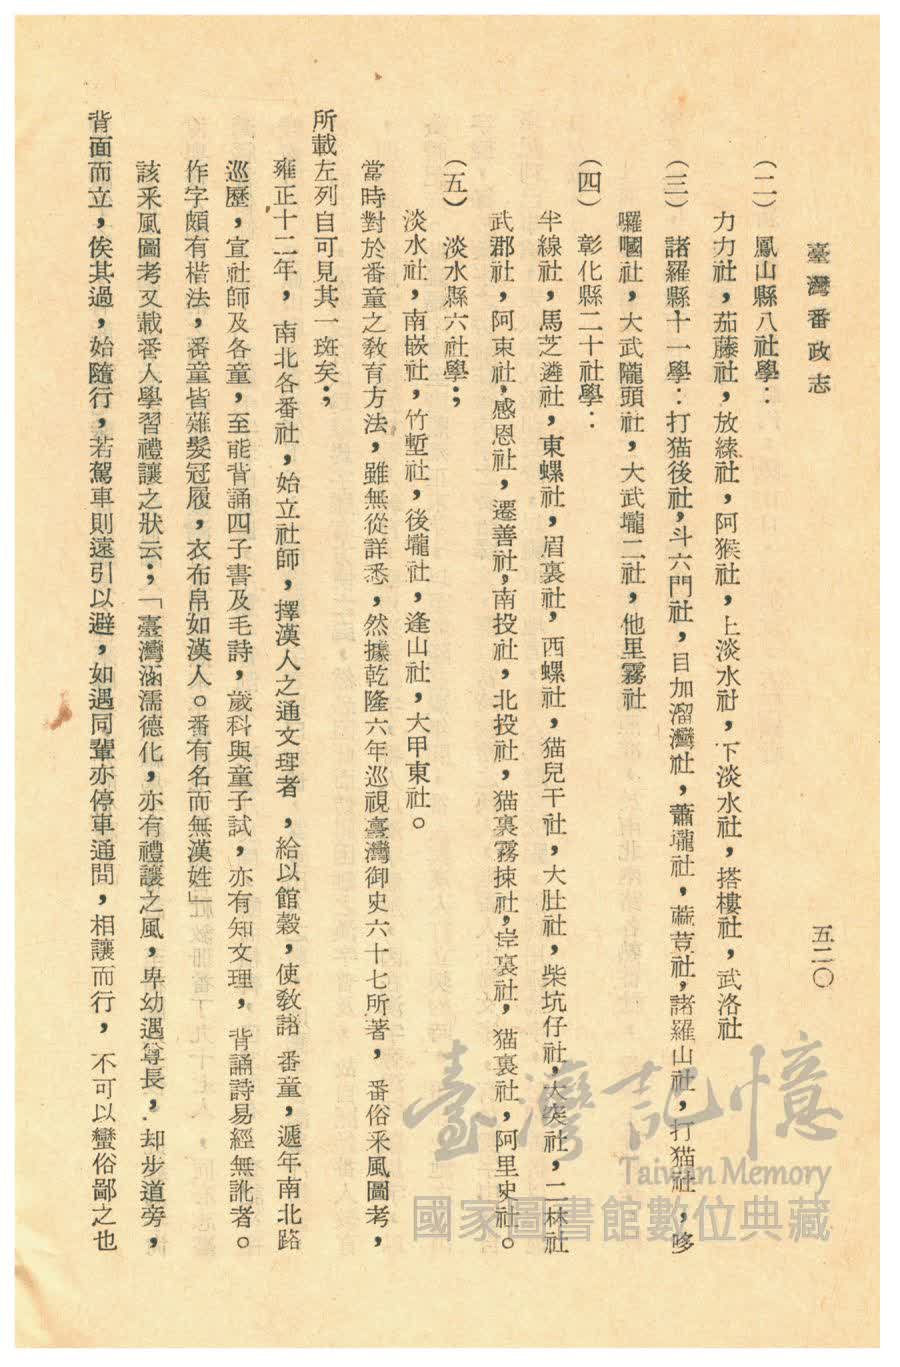 臺灣番政志
五二〇
(二) 鳳山縣八社學：
力力社，茄藤社，放䌇社，阿猴社，上淡水社，下淡水社，搭樓社，武洛社
(三) 諸羅縣十一學：打猫後社，斗六門社，目加溜灣社，蕭壠社，蔴荳社，諸羅山社，打猫社，哆
囉嘓社，大武隴頭社，大武壠二社，他里霧社
(四) 彰化縣二十社學：
半線社，馬芝遴社，東螺社，眉裏社，西螺社，猫兒干社，大肚社，柴坑仔社，大突社，二林社
武郡社，阿束社，感恩社，遷善社，南投社，北投社，猫裏霧捒社，岸裏社，猫裏社，阿里史社。
(五) 淡水縣六社學；
淡水社，南嵌社，竹塹社，後壠社，逢山社，大甲東社。
當時對於番童之敎育方法，雖無從詳悉，然據乾隆六年巡視臺灣御史六十七所著，番俗釆風圖考，
所載左列自可見其一斑矣；
雍正十二年，南北各番社，始立社師，擇漢人之通文理者，給以館穀，使敎諸番童，遞年南北路
巡歷，宣社師及各童，至能背誦四子書及毛詩，歲科與童子試，亦有知文理，背誦詩易經無訛者。
作字頗有楷法，番童皆薙髮冠履，衣布帛如漢人。番有名而無漢姓」
該釆風圖考又載番人學習禮讓之狀云；「臺灣涵濡德化，亦有禮讓之風，卑幼遇尊長，却步道旁，
背面而立，俟其過，始隨行，若駕車則遠引以避，如遇同輩亦停車通問，相讓而行，不可以蠻俗鄙之也
臺灣記憶
Taiwan Memory
國家圖書館數位典藏